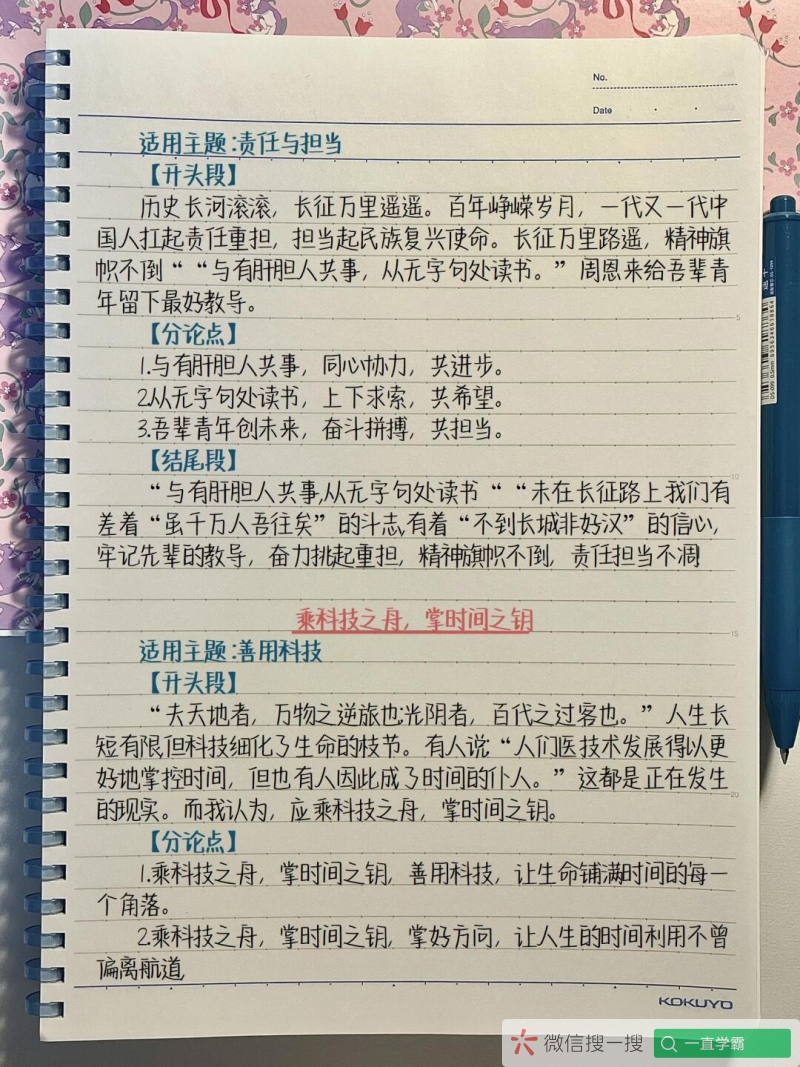 No.
Date
适用主题:责任与担当
【开头段】
历史长河滚滚，长征万里遥遥。百年峥嵘岁月，一代又一代中
国人扛起责任重担，担当起民族复兴使命。长征万里路遥，精神旗
帜不倒““与有肝胆人共事，从无字句处读书。”周恩来给吾辈青
年留下最好教导。
5
【分论点】
1.与有肝胆人共事，同心协力，共进步。
2.从无字句处读书，上下求索，共希望。
3.吾辈青年创未来，奋斗拼搏，共担当。
【结尾段】
10
“与有肝胆人共事,从无字句处读书““未在长征路上我们有
差着“虽千万人吾往矣”的斗志,有着“不到长城非好汉”的信心，
牢记先辈的教导，奋力挑起重担，精神旗帜不倒，责任担当不凋
乘科技之舟，掌时间之钥
15
适用主题:善用科技
【开头段】
“夫天地者，万物之逆旅也;光阴者，百代之过客也。”人生长
短有限,但科技细化了生命的枝节。有人说:“人们医技术发展得以更
好地掌控时间，但也有人因此成了时间的仆人。”这都是正在发生
20
的现实。而我认为，应乘科技之舟，掌时间之钥。
【分论点】
1.乘科技之舟，掌时间之钥，善用科技，让生命铺满时间的每一
个角落。
2.乘科技之舟，掌时间之钥，掌好方向，让人生的时间利用不曾
偏离航道
KOKUYO
微信搜一搜
一直学霸